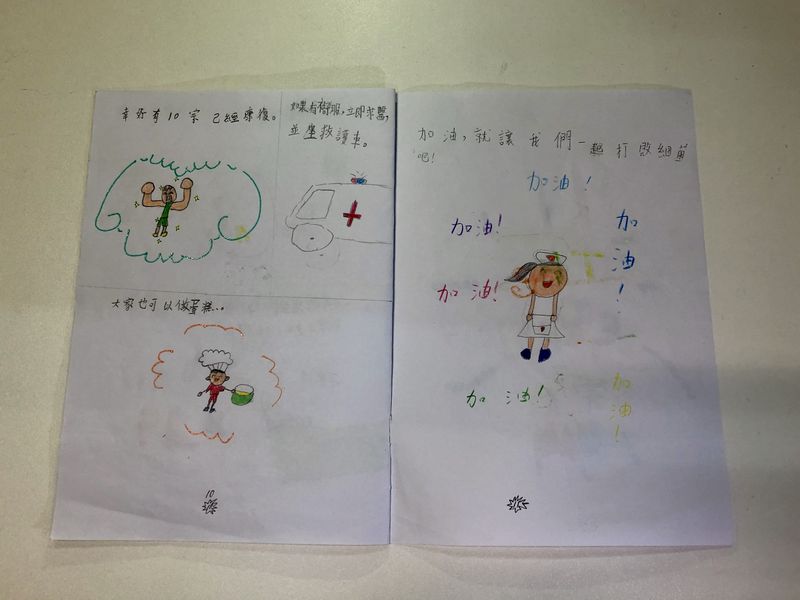 幸好有10宗已經康復。
如果有不舒服,立即求醫,
並坐救護車。
大家也可以做蛋糕...
10
加油,就讓我們一起打敗細菌
吧!
加油!
加油!
加油!
加油!
加油!
加油!